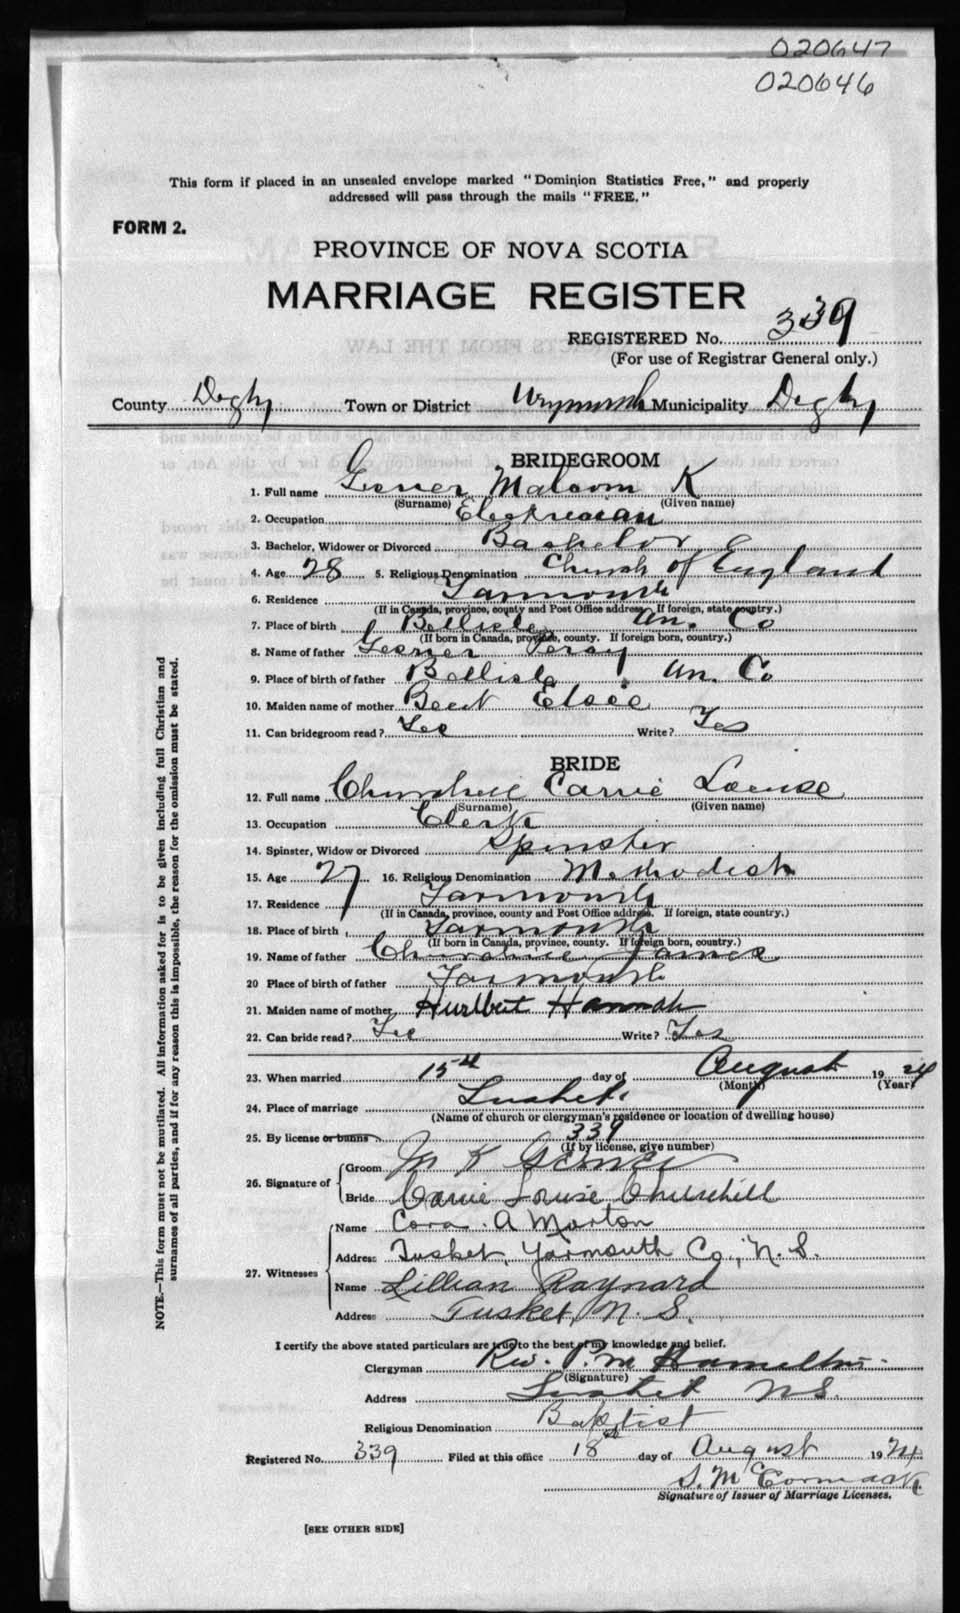 020647
020646
This form if placed in an unsealed envelope marked "Dominion Statistics Free," and properly
addressed will pass through the mails "FREE."
FORM 2.
PROVINCE OF NOVA SCOTIA
MARRIAGE REGISTER
REGISTERED No. 339
(For use of Registrar General only.)
County Digby Town or District Weymouth Municipality Digby
BRIDEGROOM
1. Full name Gesner Malcom K
(Surname) (Given name)
2. Occupation Electrician
3. Bachelor, Widower or Divorced Bachelor
4. Age 28 5. Religious Denomination Church of England
6. Residence Yarmouth
(If in Canada, province, county and Post Office address. If foreign, state country.)
7. Place of birth Bellisle An. Co
(If born in Canada, province, county. If foreign born, country.)
8. Name of father Gesner Percy
9. Place of birth of father Bellisle An. Co
10. Maiden name of mother Bent Elsie
11. Can bridegroom read? Yes Write? Yes
BRIDE
12. Full name Churchill Carrie Louise
(Surname) (Given name)
13. Occupation Clerk
14. Spinster, Widow or Divorced Spinster
15. Age 27 16. Religious Denomination Methodist
17. Residence Yarmouth
(If in Canada, province, county and Post Office address. If foreign, state country.)
18. Place of birth Yarmouth
(If born in Canada, province, county. If foreign born, country.)
19. Name of father Churchill James
20 Place of birth of father Yarmouth
21. Maiden name of mother Hurlbert Hannah
22. Can bride read? Yes Write? Yes
23. When married 15th day of August 1924
(Month) (Year)
24. Place of marriage Tusket
(Name of church or clergyman's residence or location of dwelling house)
25. By license or banns 339
(If by license, give number)
26. Signature of Groom M K Gesner
Bride Carrie Louise Churchill
27. Witnesses Name Cora A Morton
Address Tusket, Yarmouth Co., N. S.
Name Lillian Raynard
Address Tusket, N. S.
I certify the above stated particulars are true to the best of my knowledge and belief.
Clergyman Rev. P. M Hamilton
(Signature)
Address Tusket N S.
Religious Denomination Baptist
Registered No. 339 Filed at this office 18th day of August 1924
S. McCormack
Signature of Issuer of Marriage Licenses.
[SEE OTHER SIDE]
NOTE.—This form must not be mutilated. All information asked for is to be given including full Christian and
surnames of all parties, and if for any reason this is impossible, the reason for the omission must be stated.